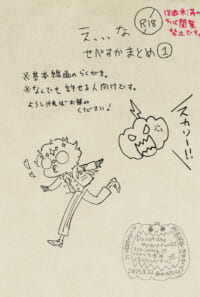 R18
18歳未満の
方は閲覧
禁止です。
え、、、な
せべすかまとめ①
※基本線画のらくがき。
※なんでも許せる人向けです。
よろしければお頼み
ください!
スカリー!!
Do not use
my art